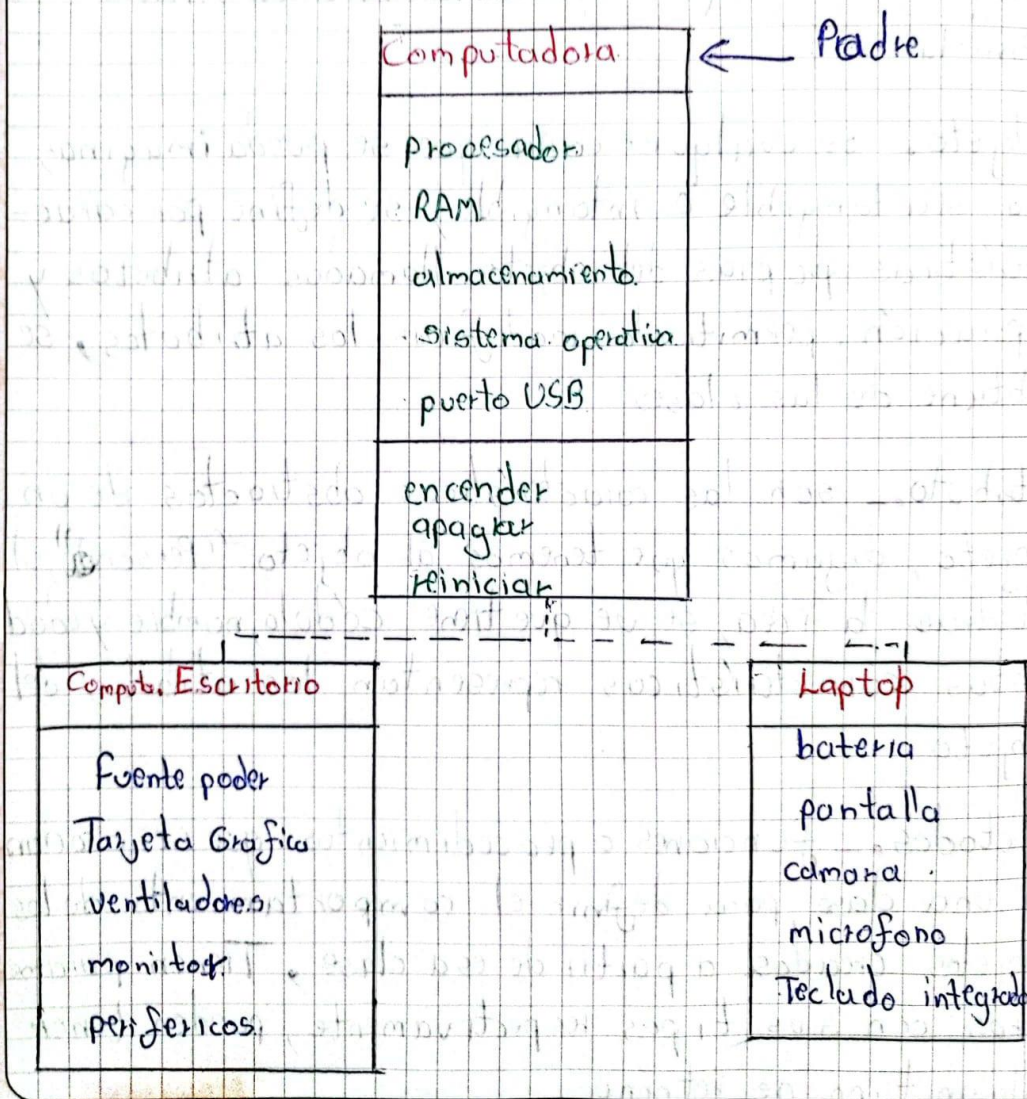 Computadora
← Padre
procesador
RAM
almacenamiento.
sistema operativa
puerto USB
encender
apagar
reiniciar
Comput. Escritorio
fuente poder
Tarjeta Grafica
ventiladores
monitor
perifericos
Laptop
bateria
pantalla
camara
microfono
Teclado integrado